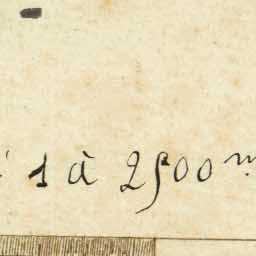 1 à 2500 m